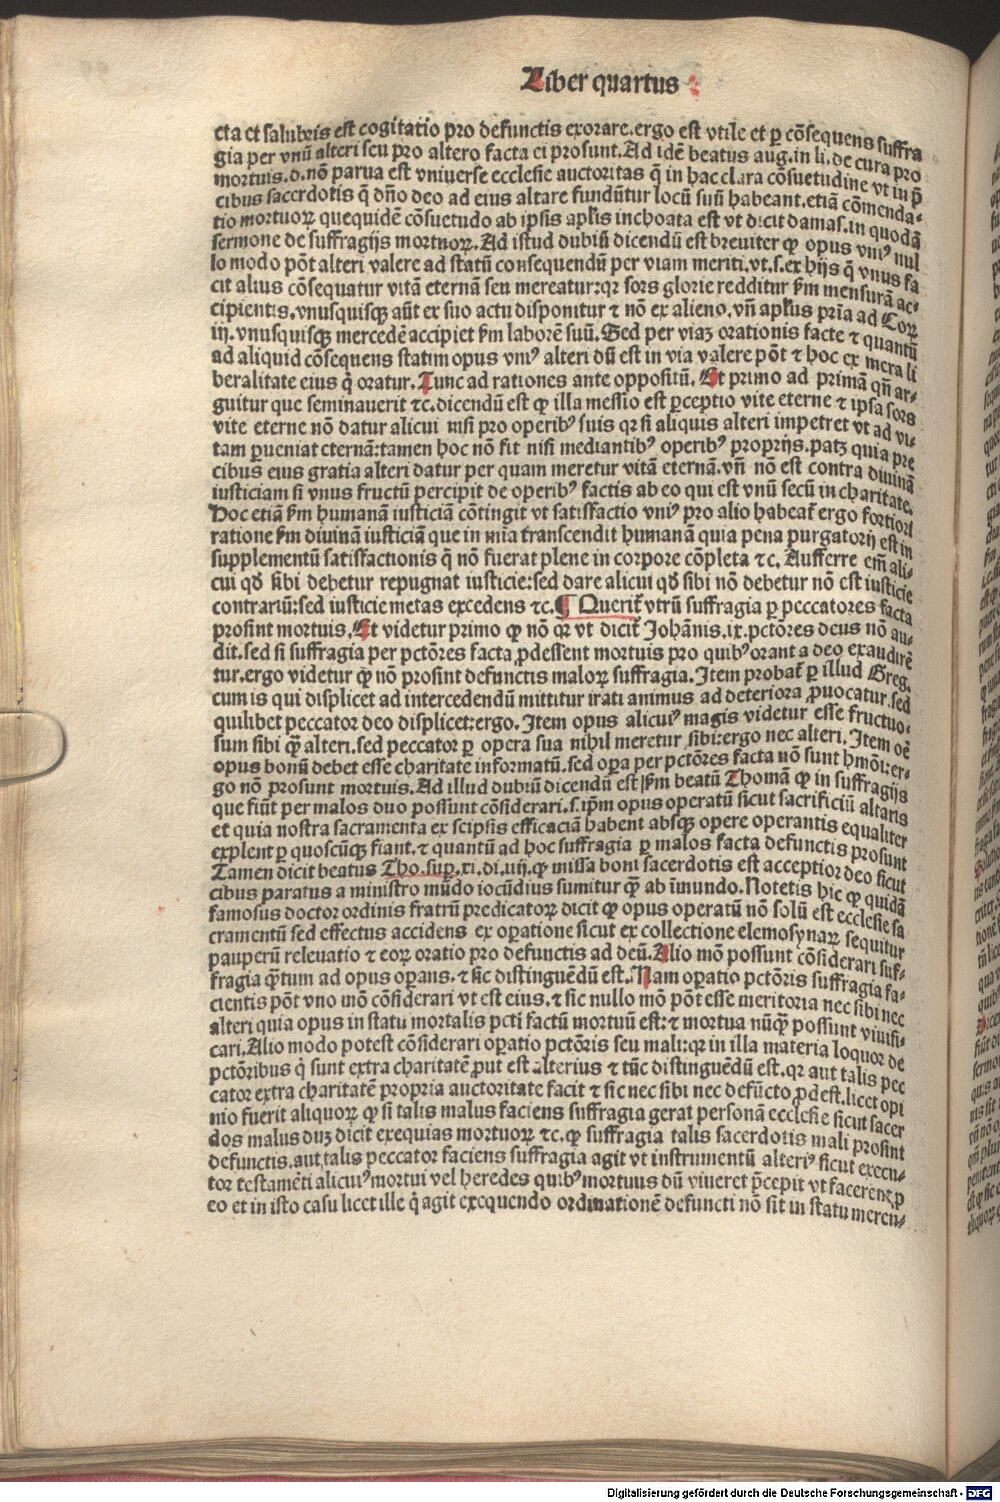 Liber quartus
cta et salubris est cogitatio pro defunctis exorare.ergo est vtile et ꝑ cōsequens suffra
gia per vnū alteri seu pro altero facta ei prosunt.Ad idē beatus aug.in li.de cura pro
mortuis.d.nō parua est vniuerse ecclesie auctoritas q̄ in hac clara cōsuetudine vt in p̄
cibus sacerdotis q̄ dn̄o deo ad eius altare fundūtur locū suū habeant.etiā cōmenda⸗
tio mortuoꝝ quequidē cōsuetudo ab ipsis apl̄is inchoata est vt dicit damas.in quodā
sermone de suffragijs mortuoꝝ.Ad istud dubiū dicendū est breuiter ꝙ opus vniꝰ nul
lo modo pōt alteri valere ad statū consequendū per viam meriti.vt.s.ex hijs q̄ vnus fa
cit alius cōsequatur vitā eternā seu mereatur:qꝛ sors glorie redditur ẜm mensurā ac⸗
cipientis.vnusquisqꝫ aūt ex suo actu disponitur ⁊ nō ex alieno.vn̄ apl̄us pria ad Coꝝ
iij.vnusquisqꝫ mercedē accipiet ẜm laborē suū.Sed per viaꝫ orationis facte ⁊ quantū
ad aliquid cōsequens statim opus vniꝰ alteri dū est in via valere pōt ⁊ hoc ex mera li
beralitate eius q̄ oratur.Tunc ad rationes ante oppositū.Et primo ad primā qn̄ ar⸗
guitur que seminauerit ⁊c.dicendū est ꝙ illa messio est ꝑceptio vite eterne ⁊ ipsa sors
vite eterne nō datur alicui nisi pro operibꝰ suis qꝛ si aliquis alteri impetret vt ad vi⸗
tam ꝑueniat eternā:tamen hoc nō fit nisi mediantibꝰ operibꝰ proprijs.patꝫ quia pre
cibus eius gratia alteri datur per quam meretur vitā eternā.vn̄ nō est contra diuinā
iusticiam si vnus fructū percipit de operibꝰ factis ab eo qui est vnū secū in charitate.
Hoc etiā ẜm humanā iusticiā cōtingit vt satisfactio vniꝰ pro alio habeat̄ ergo fortiori
ratione ẜm diuinā iusticiā que in mīa transcendit humanā quia pena purgatorij est in
supplementū satisfactionis q̄ nō fuerat plene in corpore cōpleta ⁊c. Aufferre em̄ ali⸗
cui qd̄ sibi debetur repugnat iusticie:sed dare alicui qd̄ sibi nō debetur nō est iusticie
contrariū:sed iusticie metas excedens ⁊c.¶ Querit̄ vtrū suffragia ꝑ peccatores facta
prosint mortuis.Et videtur primo ꝙ nō qꝛ vt dicit̄ Johānis.ix.pctōres deus nō au⸗
dit.sed si suffragia per pctōres facta ꝓdessent mortuis pro quibꝰ orant a deo exaudirē
tur.ergo videtur ꝙ nō prosint defunctis maloꝝ suffragia.Item probat̄ ꝑ illud Greg.
cum is qui displicet ad intercedendū mittitur irati animus ad deteriora ꝓuocatur.sed
quilibet peccator deo displicet:ergo.Item opus alicuiꝰ magis videtur esse fructuo⸗
sum sibi qꝫ̄ alteri.sed peccator ꝑ opera sua nihil meretur sibi:ergo nec alteri.Item oē
opus bonū debet esse charitate informatū.sed oꝑa per pctōres facta nō sunt hmōi:er⸗
go nō prosunt mortuis.Ad illud dubiū dicendū est ẜm beatū Thomā ꝙ in suffragijs
que fiūt per malos duo possunt cōsiderari.s.ip̄m opus operatū sicut sacrificiū altaris
et quia nostra sacramenta ex seipsis efficaciā habent absqꝫ opere operantis equaliter
explent ꝑ quoscūqꝫ fiant.⁊ quantū ad hoc suffragia ꝑ malos facta defunctis prosunt
Tamen dicit beatus Tho.suꝑ.xi.di.iiij.ꝙ missa boni sacerdotis est acceptior deo sicut
cibus paratus a ministro mūdo iocūdius sumitur qꝫ̄ ab īmundo.Notetis hic ꝙ quidā
famosus doctor ordinis fratrū predicatoꝝ dicit ꝙ opus operatū nō solū est ecclesie sa
cramentū sed effectus accidens ex oꝑatione sicut ex collectione elemosynaꝝ sequitur
pauperū releuatio ⁊ eoꝝ oratio pro defunctis ad deū.Alio mō possunt cōsiderari suf⸗
fragia qꝫ̄tum ad opus oꝑans.⁊ sic distinguēdū est.Nam oꝑatio pctōris suffragia fa⸗
cientis pōt vno mō cōsiderari vt est eius.⁊ sic nullo mō pōt esse meritoria nec sibi nec
alteri quia opus in statu mortalis pcti factū mortuū est:⁊ mortua nūqꝫ̄ possunt viuifi⸗
cari.Alio modo potest cōsiderari oꝑatio pctōris seu mali:qꝛ in illa materia loquor de
pctōribus q̄ sunt extra charitatē ꝓut est alterius ⁊ tūc distinguēdū est.qꝛ aut talis pec
cator extra charitatē propria auctoritate facit ⁊ sic nec sibi nec defūcto ꝓdest.licet opi
nio fuerit aliquoꝝ ꝙ si talis malus faciens suffragia gerat personā ecclesie sicut sacer
dos malus duꝫ dicit exequias mortuoꝝ ⁊c.ꝙ suffragia talis sacerdotis mali prosint
defunctis.aut talis peccator faciens suffragia agit vt instrumentū alteriꝰ sicut execu⸗
tor testamēti alicuiꝰ mortui vel heredes quibꝰ mortuus dū viueret p̄cepit vt facerent ꝓ
eo et in isto casu licet ille q̄ agit exequendo ordinationē defuncti nō sit in statu meren⸗
Digitalisierung gefördert durch die Deutsche Forschungsgemeinschaft - DFG